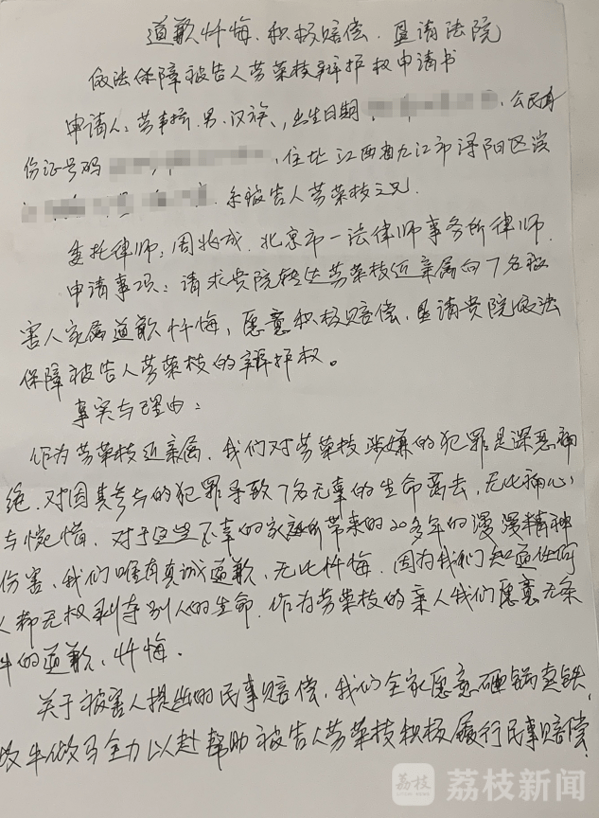 道歉忏悔、积极赔偿、恳请法院
依法保障被告人劳荣枝辩护权申请书
申请人：劳声桥，男，汉族，出生日期，公民身
份证号码，住址江西省九江市浔阳区滨
，系被告人劳荣枝之兄。
委托律师：周兆成，北京市一法律师事务所律师
申请事项：请求贵院转达劳荣枝近亲属向7名被
害人家属道歉忏悔，愿意积极赔偿，恳请贵院依法
保障被告人劳荣枝的辩护权。
事实与理由：
作为劳荣枝近亲属，我们对劳荣枝涉嫌的犯罪是深恶痛
绝，对因其参与的犯罪导致7名无辜的生命离去，无比痛心
与惋惜，对于这些不幸的家庭所带来的20多年的漫漫精神
伤害，我们唯有真诚道歉、无比忏悔，因为我们知道任何
人都无权剥夺别人的生命，作为劳荣枝的亲人我们愿意无条
件的道歉，忏悔。
关于被害人提出的民事赔偿，我们全家愿意砸锅卖铁，
做牛做马全力以赴帮助被告人劳荣枝积极履行民事赔偿
荔枝新闻